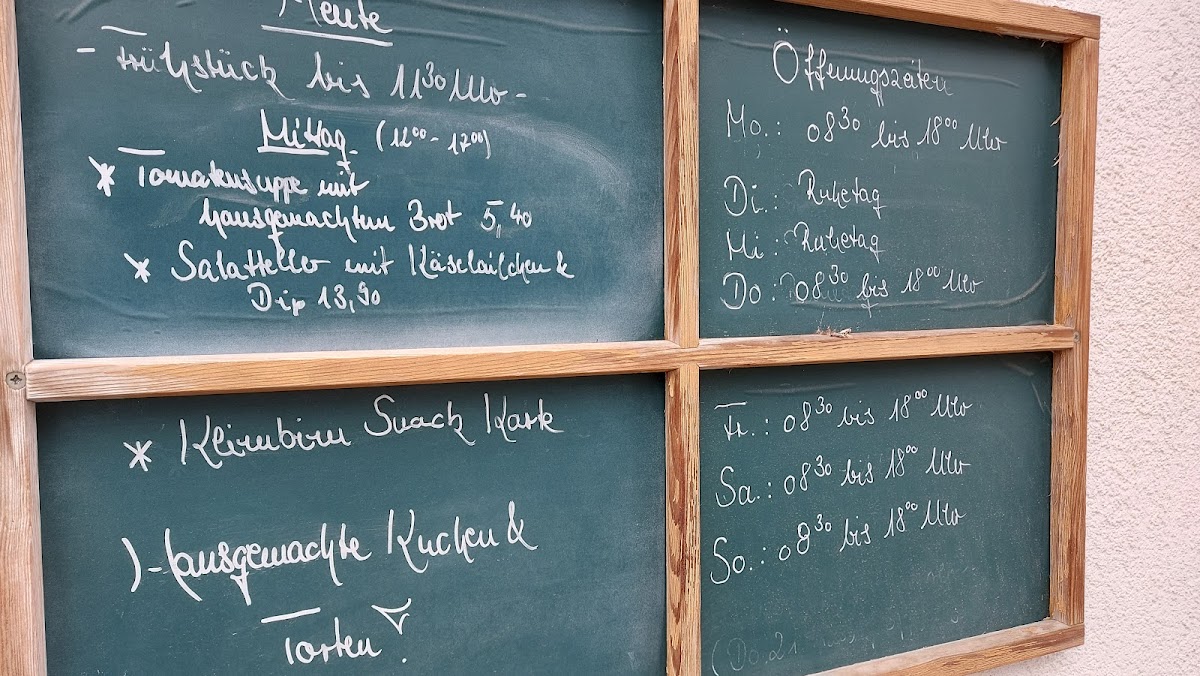 Heute
- Frühstück bis 11³⁰ Uhr -
Mittag (12⁰⁰ - 17⁰⁰)
* Tomatensuppe mit
hausgemachten Brot 5,40
* Salatteller mit Käselaibchen &
Dip 13,90
* Klirrbirn Snack Karte
Hausgemachte Kuchen &
Torten!
Öffnungszeiten
Mo.: 08³⁰ bis 18⁰⁰ Uhr
Di.: Ruhetag
Mi: Ruhetag
Do: 08³⁰ bis 18⁰⁰ Uhr
Fr.: 08³⁰ bis 18⁰⁰ Uhr
Sa.: 08³⁰ bis 18⁰⁰ Uhr
So.: 08³⁰ bis 18⁰⁰ Uhr
(Do.21